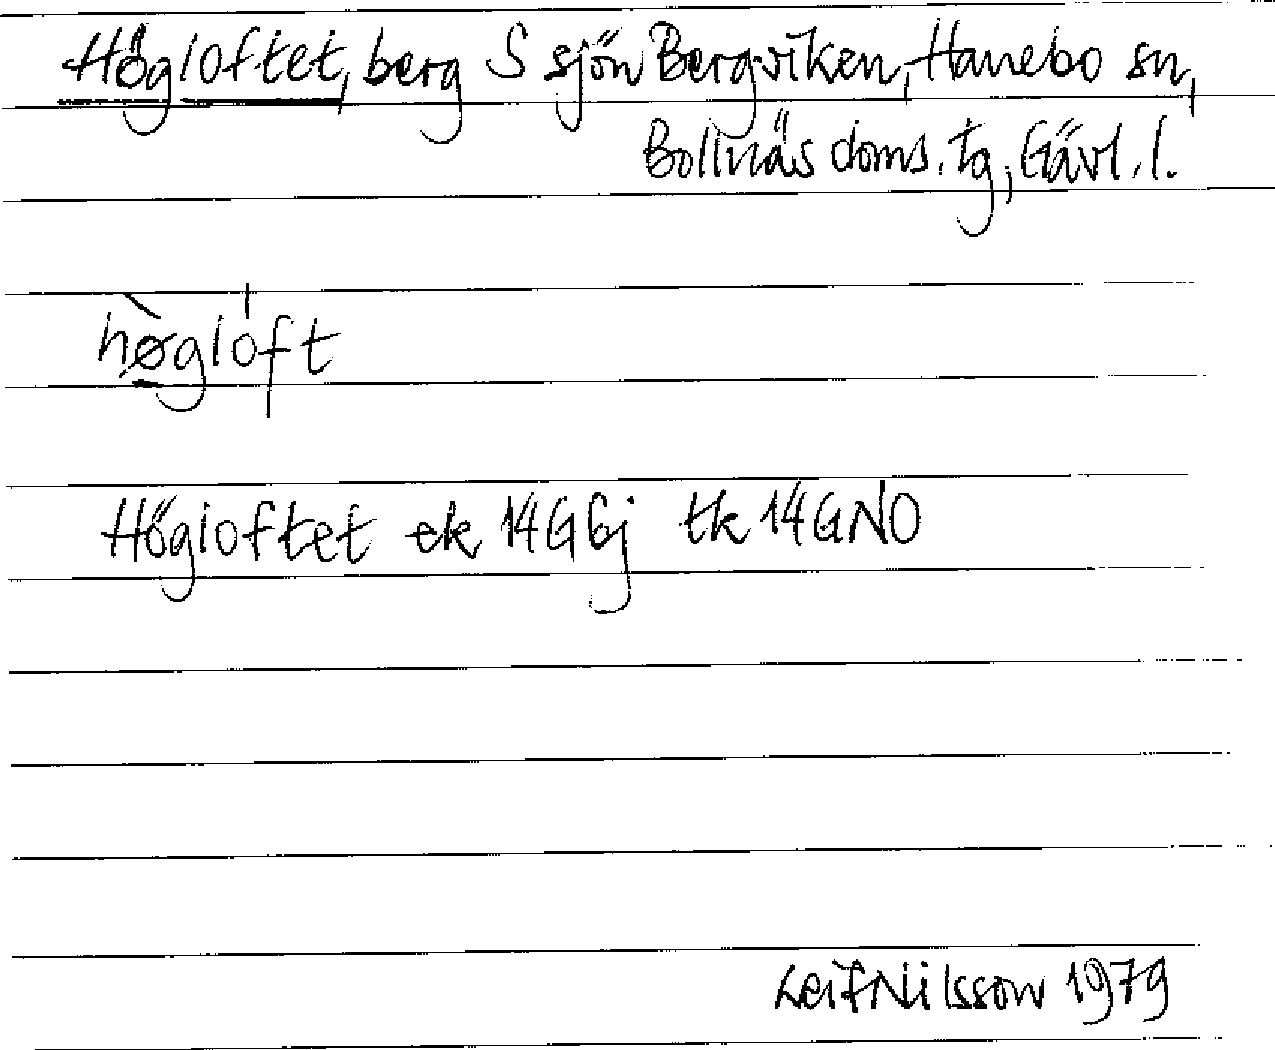 Högloftet, berg S sjön Bergviken, Hanebo sn,
Bollnäs doms. tg, Gävl. l.
hø̀glóft
Högloftet ek 14G6j tk 14GNO
Leif Nilsson 1979